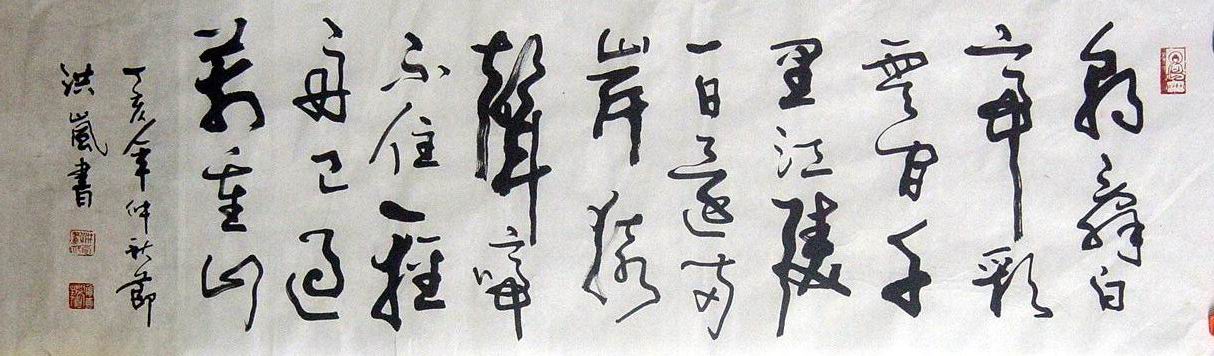 朝辭白
帝彩
雲間千
里江陵
一日還兩
岸猿
聲啼
不住輕
舟已過
萬重山
丁亥年仲秋節
洪嵐書